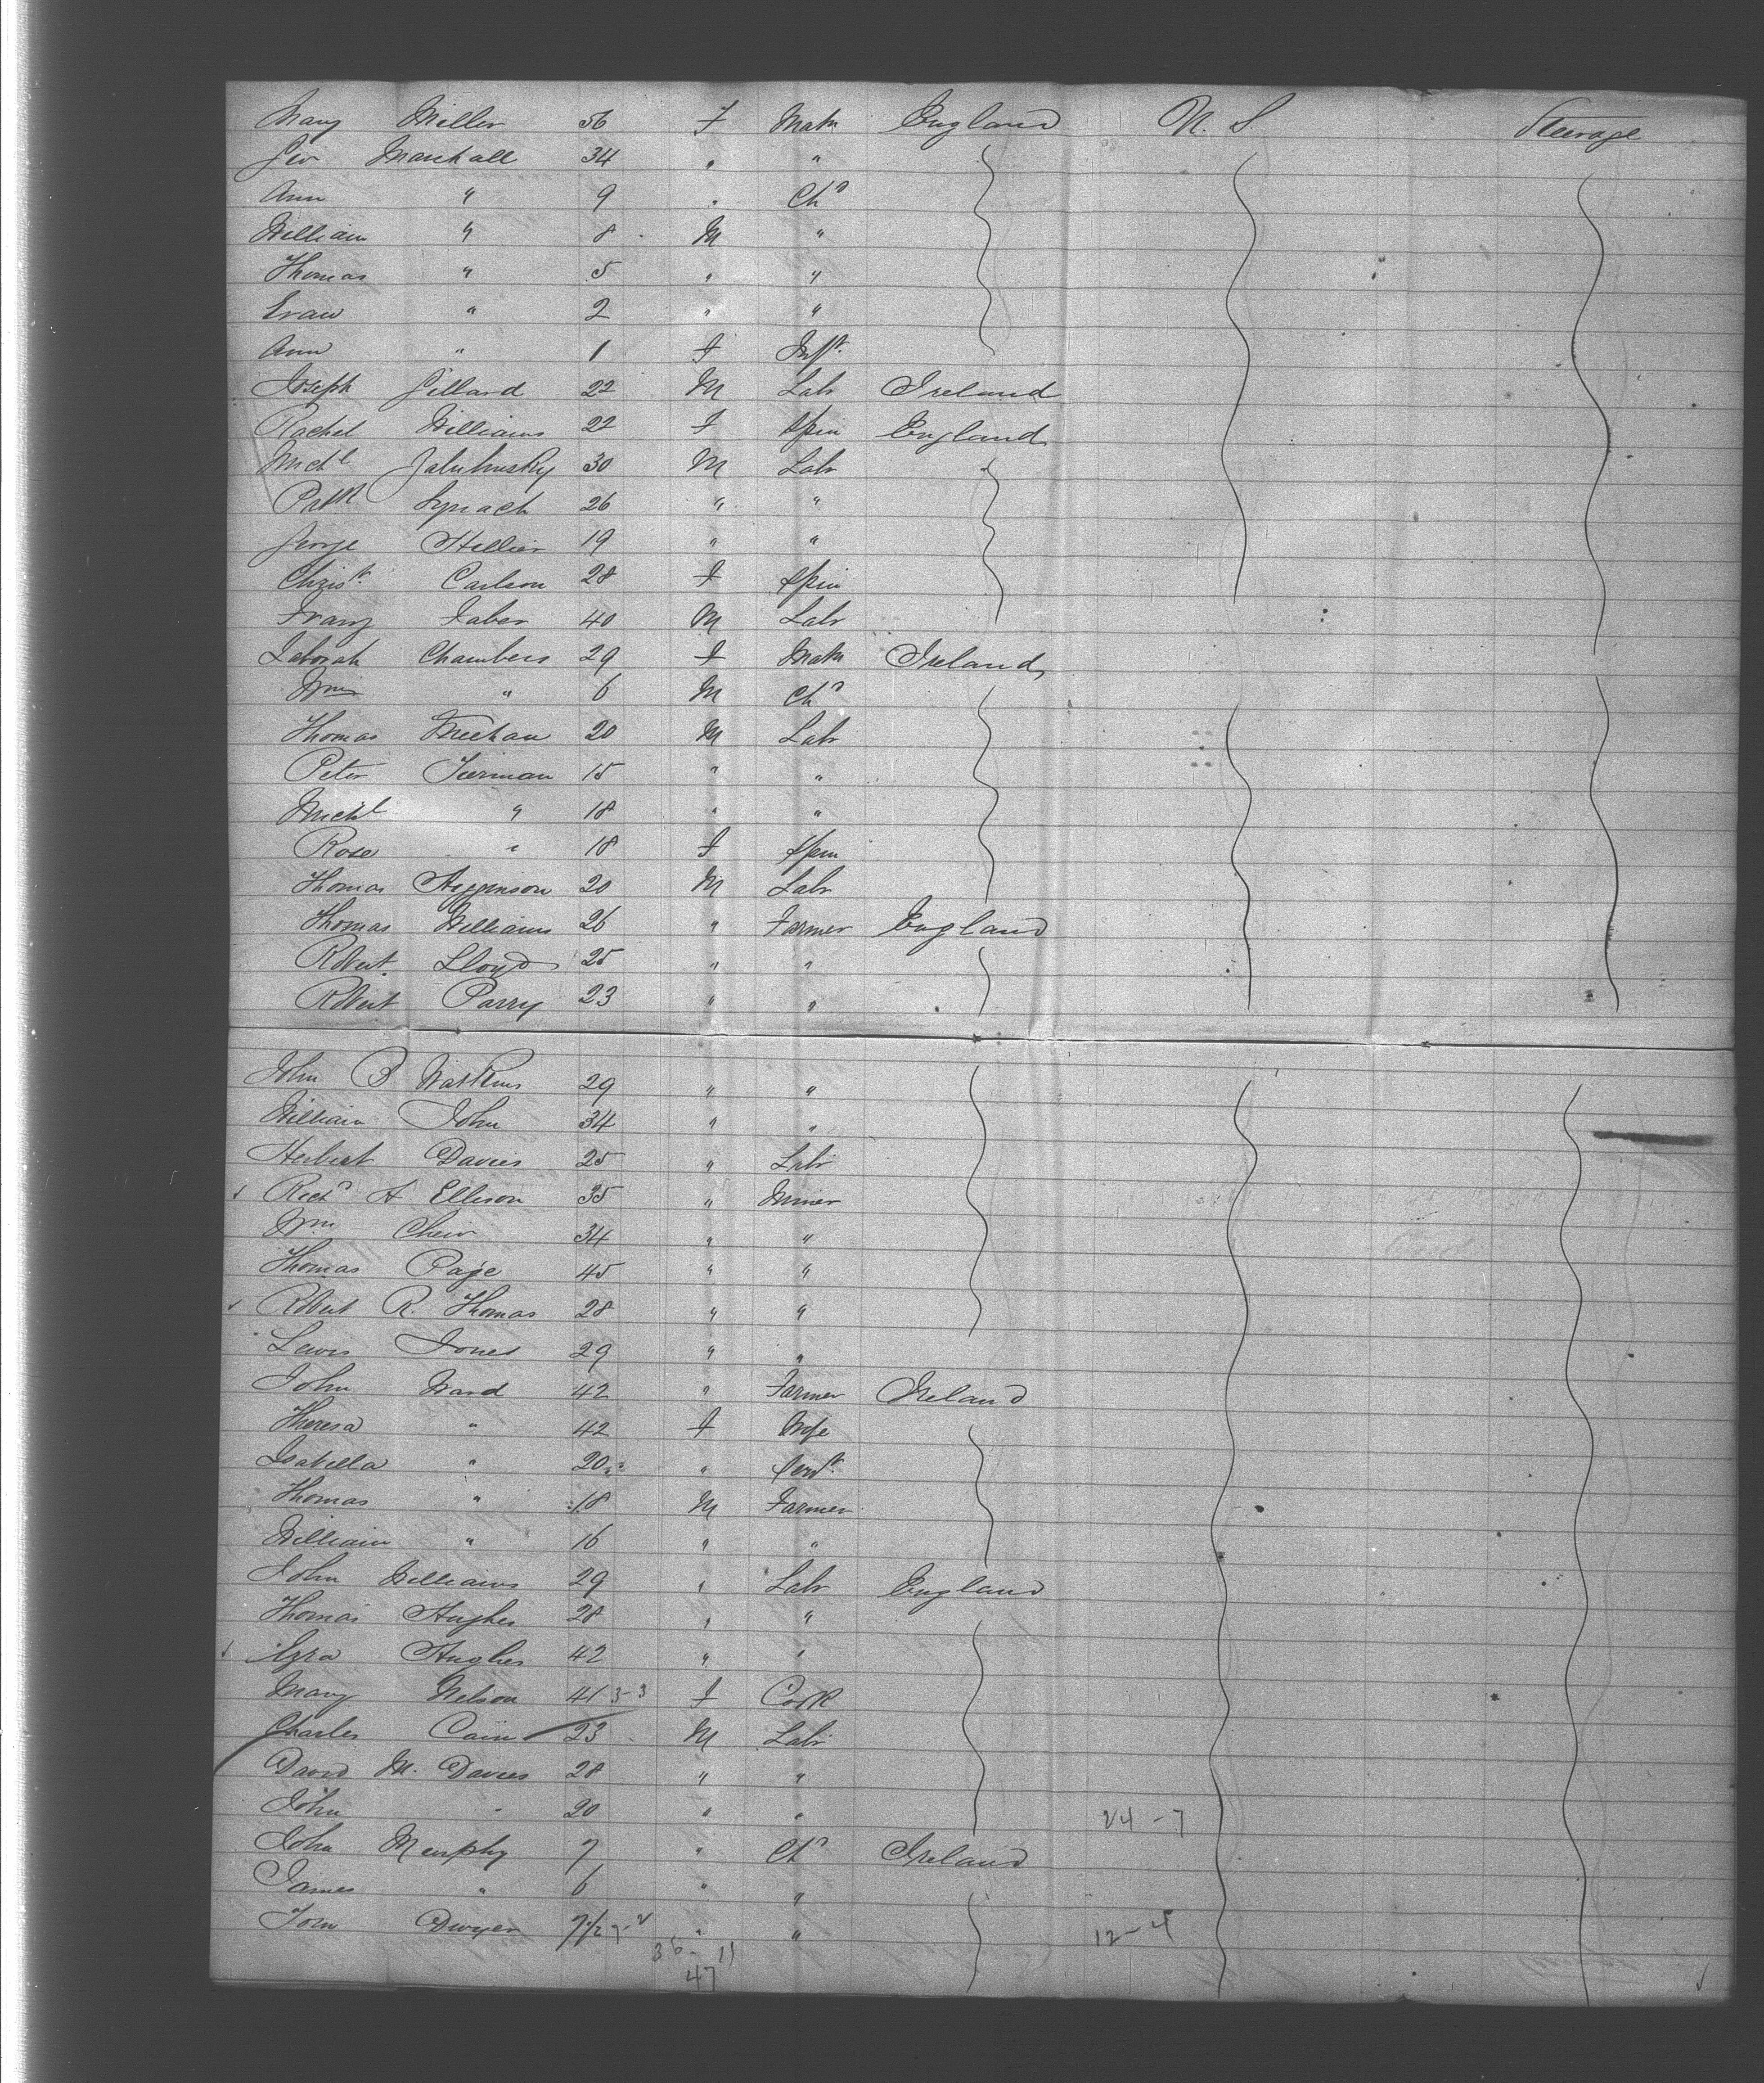 Mary Miller 56 F Matn England U. S Steerage
Geo Marshall 34 " "
Ann " 9 " Chd
William " 8 M "
Thomas " 5 " "
" 2 " "
Ann " 1 F Inft
Joseph Gillard 22 M Labr Ireland
Rachel Williams 22 F Spin England
Michl 30 M Labr
Patk 26 " "
George Hellier 19 " "
Christr Carlson 28 F Spin
Franz Faber 40 M Labr
Deborah Chambers 29 F Matn Ireland
Wm " 6 M Chd
Thomas Meehan 20 M Labr
Peter Tierman 15 " "
Michl " 18 " "
Rose " 18 F Spin
Thomas Higginson 20 M Labr
Thomas Williams 26 " Farmer England
Robert Lloyd 25 " "
Robert Parry 23 " "
John B Watkins 29 " "
William John 34 " "
Herbert Davies 25 " Labr
Richd A Ellison 35 " Miner
Wm 34 " "
Thomas Page 45 " "
Robert R. Thomas 28 " "
Lewis Jones 29 " "
John Ward 42 " Farmer Ireland
Theresa " 42 F Wife
Isabella " 20 " Servt
Thomas " 18 M Farmer
William " 16 " "
John Williams 29 " Labr England
Thomas Hughes 28 " "
Ezra Hughes 42 " "
Mary Nelson 41 3-3 F Cook
Charles Cain 23 M Labr
David M. Davies 28 " "
John " 20 " " 24-7
John Murphy 7 " Chd Ireland
James " 6 " "
John Dwyer 7 " " 12-4
36-11
47